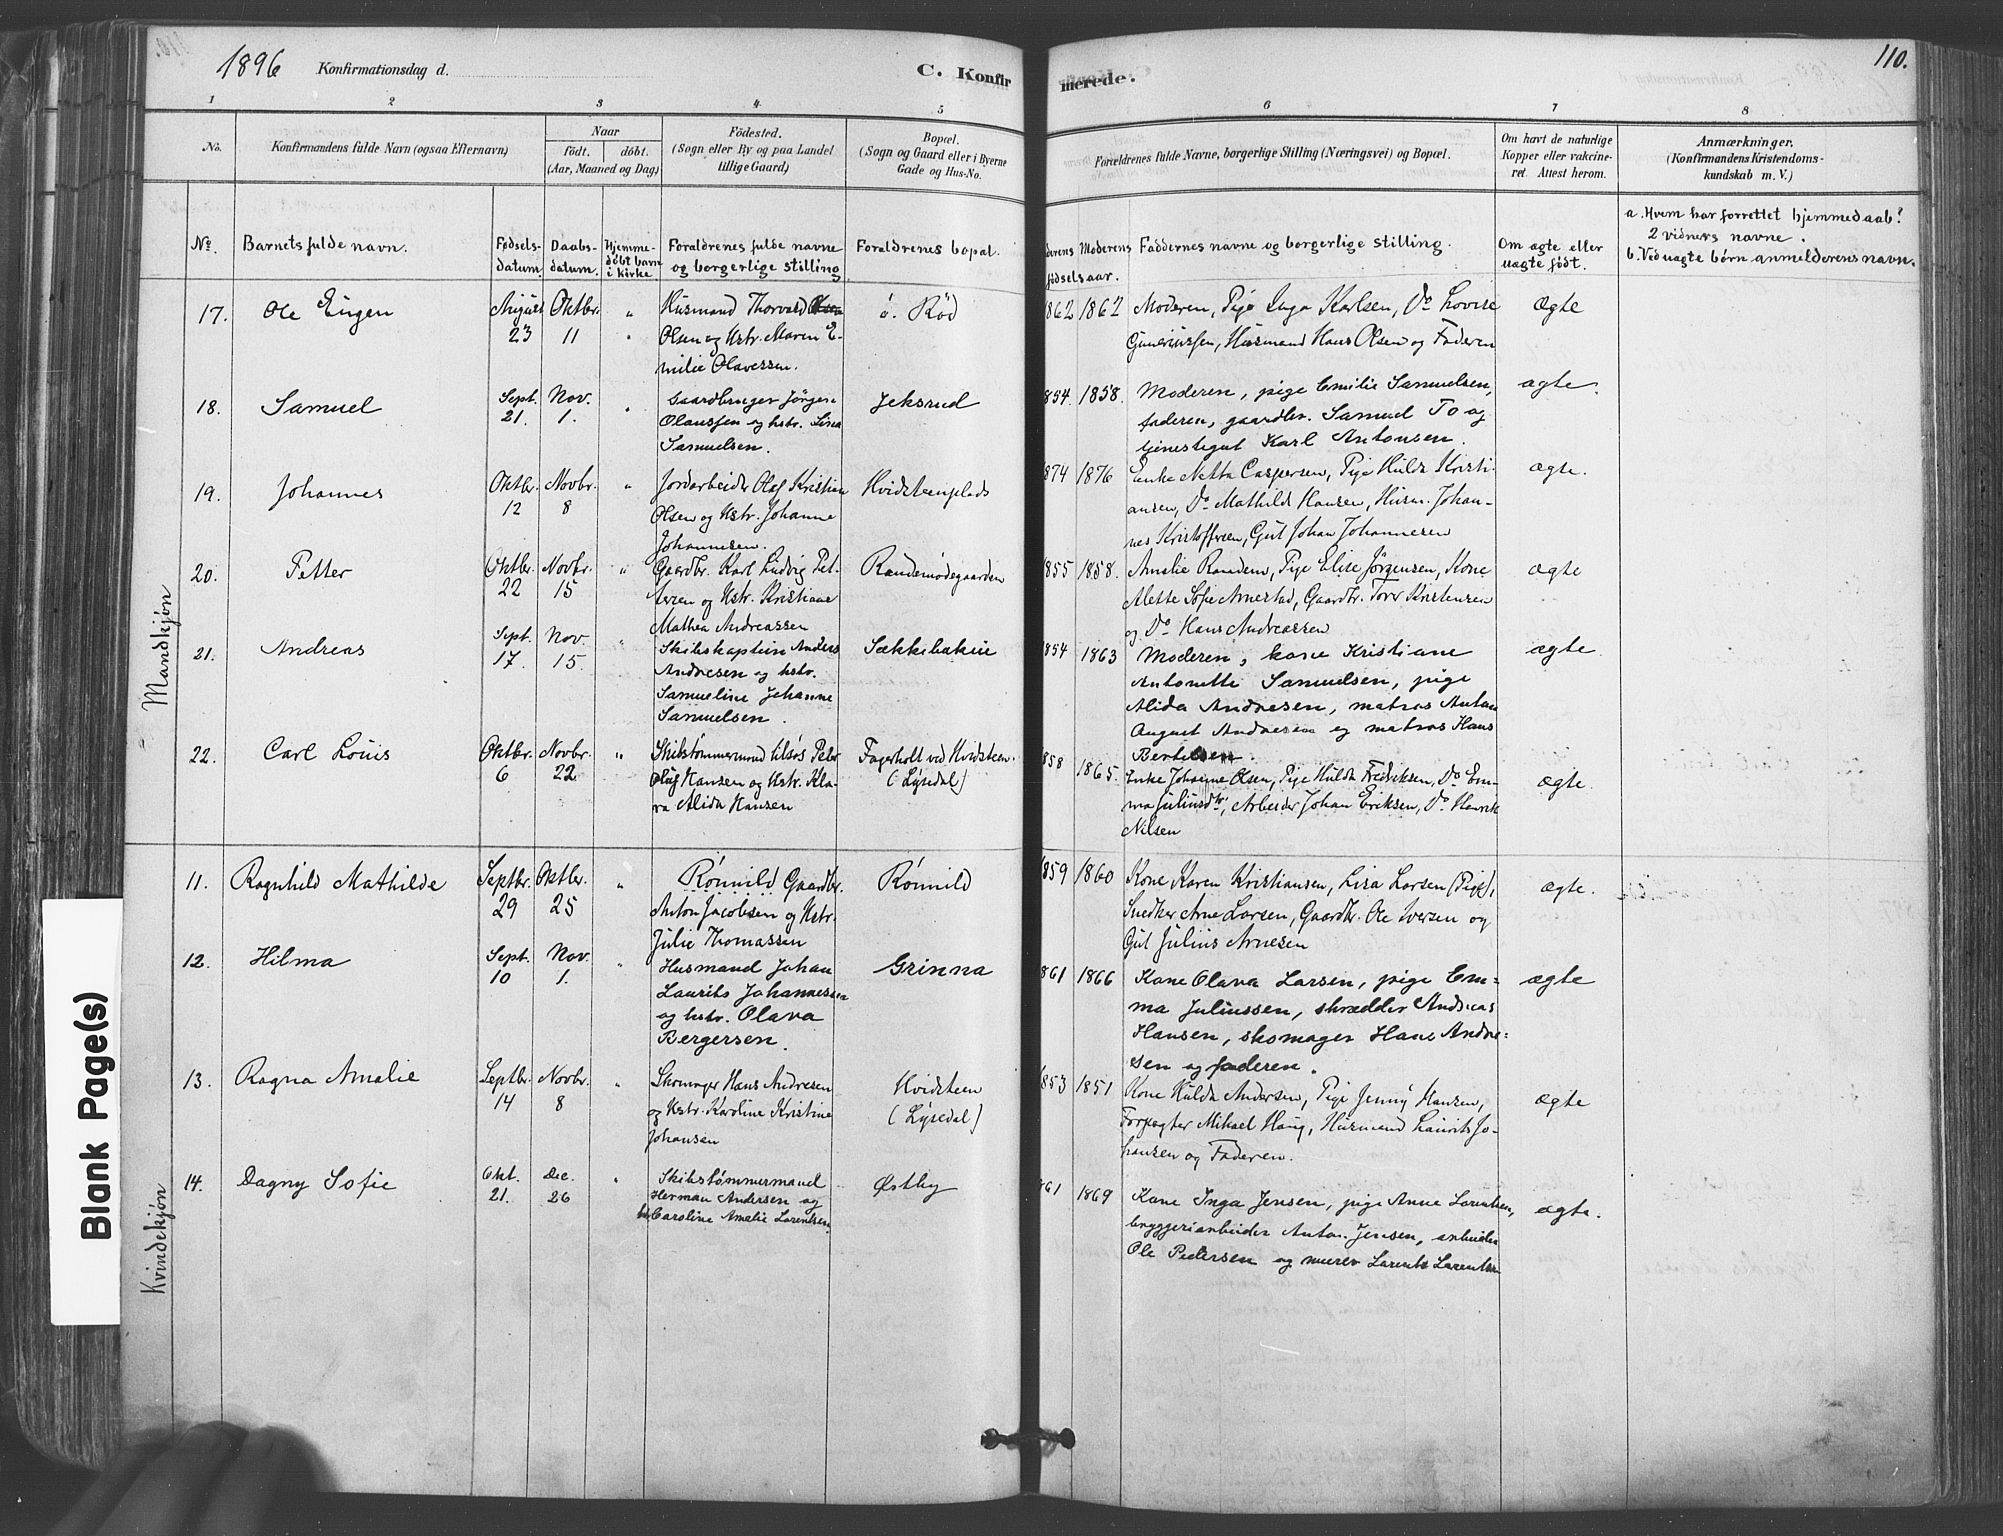 1896 Konfirmationsdag d. C. Konfirmerede. 110.
1 2 3 4 5 6 7 8
No.
Konfirmandens fulde Navn (ogsaa Efternavn)
Naar
födt. döbt.
(Aar, Maaned og Dag)
Födested.
(Sogn eller By og paa Landet
tillige Gaard)
Bopæl.
(Sogn og Gaard eller i Byerne
Gade og Hus-No.
Forældrenes fulde Navne, borgerlige Stilling (Næringsvei) og Bopæl.
Om havt de naturlige
Kopper eller vakcine-
ret. Attest herom.
Anmærkninger.
(Konfirmandens Kristendoms-
kundskab m. V.)
No.
Barnets fulde navn.
Fødsels-
datum
Daabs-
datum.
Hjemme-
døbt barn
i kirke
Foraldrenes fulde navne
og borgerlige stilling
Foraldrenes bopæl.
derens Moderens
fødselsaar.
Faddernes navne og borgerlige stilling.
Om ægte eller
uægte født.
a. Hvem har forrettet hjemmedaab?
2 vidners navne.
b. Ved uægte børn anmelderens navn.
Mandkjøn
17. Ole Eugen
August
23
Oktbr.
11
"
Husmand Thorvald
Olsen og Hstr. Maren E-
milie Olavessen.
ö. Röd
862 1862
Moderen, Pige Inga Karlsen, Do Lovise
Guneriussen, Husmand Hans Olsen og Faderen
Ægte
18. Samuel
Sept.
21.
Nov.
1.
"
Gaardbruger Jörgen
Olaussen og hstr. Lina
Samuelsen.
Jeksrud
854. 1858.
Moderen, pige Emilie Samuelsen,
faderen, gaardbr. Samuel To og
tjenestegut Karl Antonsen.
ægte.
19. Johannes
Oktbr.
12
Novbr.
8
"
Jordarbeider Olaf Kristian
Olsen og Hstr. Johanne
Johannesen.
Hvidstenplads
874 1876
Enke Netta Caspersen, Pige Hulda Kristi-
ansen, Do Mathilde Hansen, Husm. Johan-
nes Kristoffersen, Gut Johan Johannesen
ægte.
20. Petter
Oktbr.
22
Novbr.
15
"
Gaardbr. Karl Ludvig Pet-
tersen og Hstr. Kristiane
Mathea Andreassen
Randemødegaarden
1855 1858.
Amalie Randem, Pige Elise Jørgensen, Kone
Alette Sofie Arnestad, Gaardbr. Torer Kristensen
og Do Hans Andreassen
ægte
21. Andreas
Sept.
17.
Nov.
15.
"
Skibskaptein Anders
Andresen og hstr.
Samueline Johanne
Samuelsen.
Sækkebakke
854 1863
Moderen, kone Kristiane
Antonette Samuelsen, pige
Alida Andresen, matros Anton
August Andresen og matros Hans
Bertelsen.
ægte
22. Carl Louis
Oktbr.
6
Novbr.
22
"
Skibstømmermand tilsøs Peter
Oluf Hansen og Hstr. Kla-
ra Alida Hansen
Fagerholt ved Hvidsteen.
(Lysedal)
858 1865.
Enke Johanne Olsen, Pige Hulda Fredriksen, Do Em-
ma Juliusdtr, Arbeider Johan Eriksen, Do Henrik
Nilsen
ægte.
Kvindekjøn
11. Ragnhild Mathilde
Septbr.
29
Oktbr.
25
"
Rönnild Gaardbr.
Anton Jacobsen og Hstr.
Julie Thomassen
Rönnild
1859 1860
Kone Karen Kristiansen, Lisa Larsen (Pige),
Snedker Arne Larsen, Gaardbr. Ole Iversen og
Gut Julius Arnesen
ægte.
12. Hilma
Sept.
10
Nov.
1.
"
Husmand Johan
Laurits Johannesen
og hstr. Olava
Bergersen.
Grinna
861 1866
Kone Olava Larsen, pige Em-
ma Juliussen, skrædder Andreas
Hansen, skomager Hans Andre-
sen og faderen.
ægte
13. Ragna Amalie
Septbr.
14
Novbr.
8
"
Skomager Hans Andresen
og Hstr. Karoline Kristine
Johansen
Hvidsteen
(Lysedal)
853 1851
Kone Hulda Andersen, Pige Jenny Hansen,
Forpagter Mikael Haug, Husmand Laurits Jo-
hansen og Faderen.
ægte
14. Dagny Sofie
Okt.
21.
Dec.
26
"
Skibstømmermand
Herman Andersen og
Caroline Amelie Lorentsen
Østby
861 1869
Kone Inga Jensen, pige Anne Lorentsen,
bryggeriarbeider Anton Jensen, arbeider
Ole Pedersen og murer Lorents Lorentsen
ægte.
Blank Page(s)